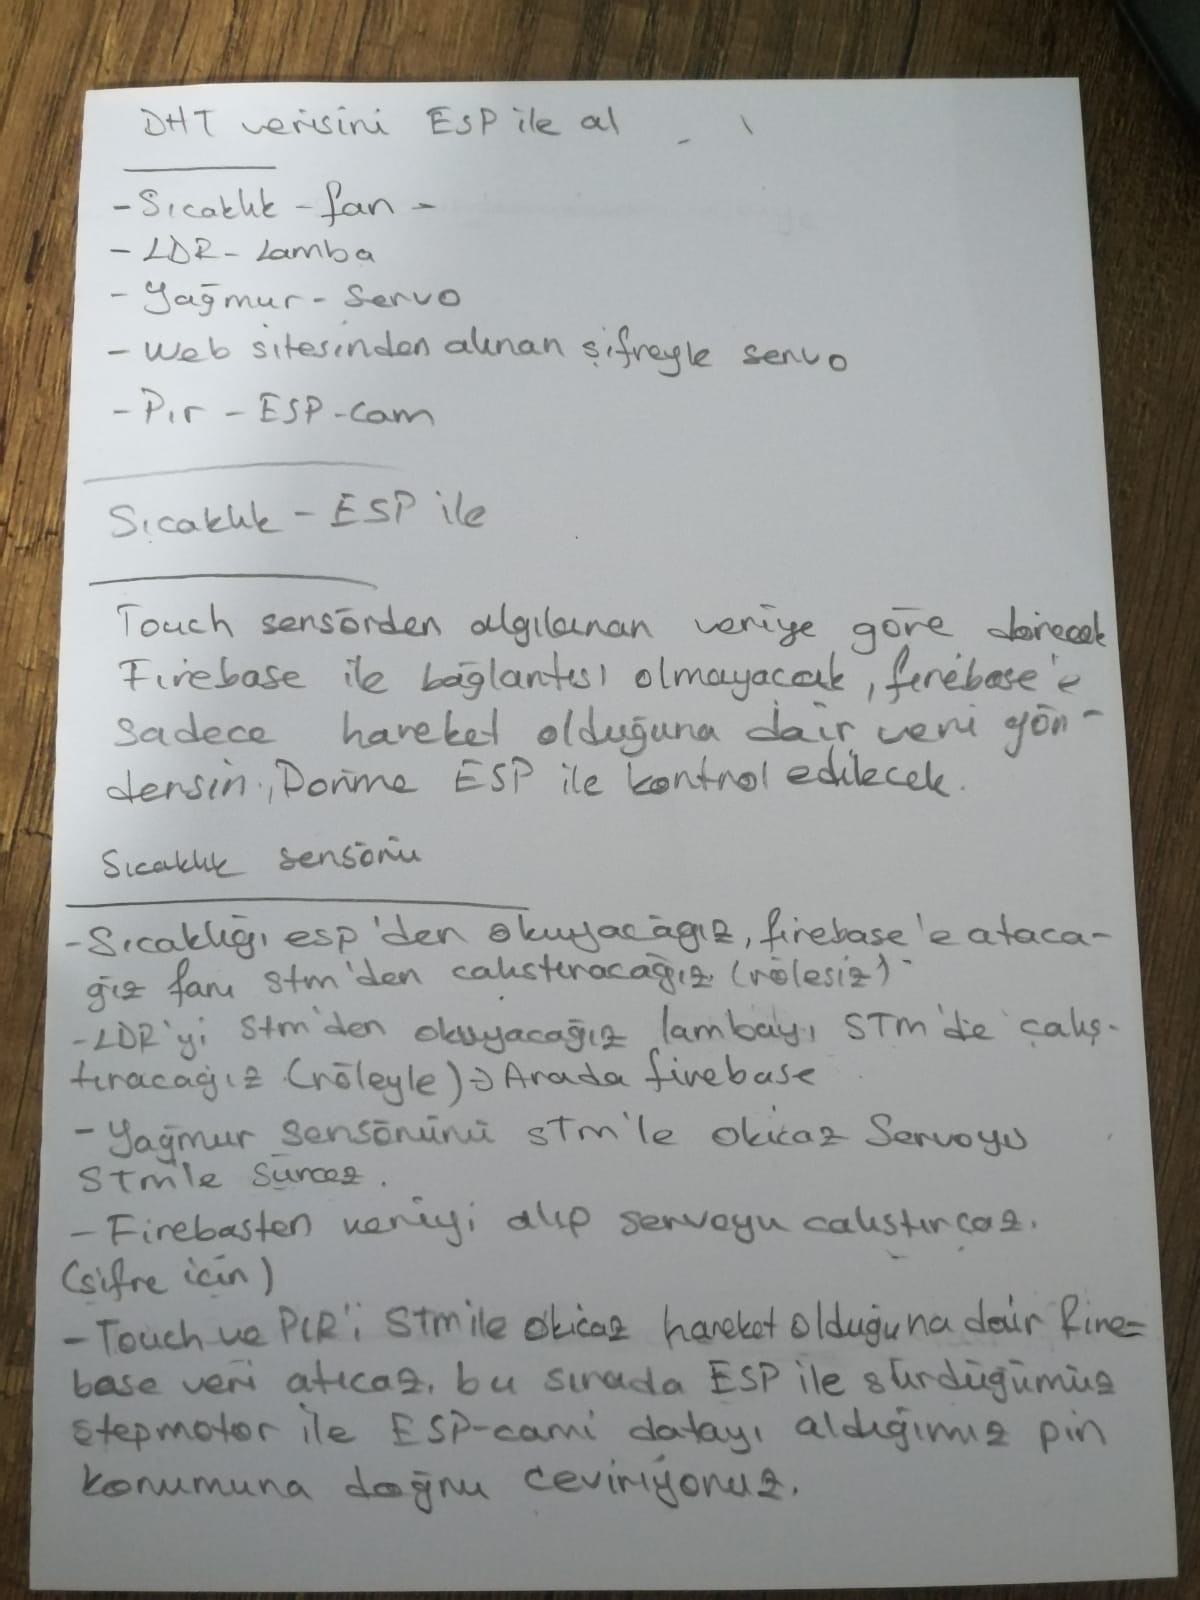 DHT verisini ESP ile al
- Sıcaklık - fan -
- LDR - Lamba
- Yağmur - Servo
- Web sitesinden alınan şifreyle servo
- Pır - ESP - Cam
Sıcaklık - ESP ile
Touch sensörden algılanan veriye göre dönecek
Firebase ile bağlantısı olmayacak, firebase'e
sadece hareket olduğuna dair veri gön-
dersin, Dönme ESP ile kontrol edilecek.
Sıcaklık sensörü
- Sıcaklığı esp'den okuyacağız, firebase'e ataca-
ğız fanı stm'den calıstıracağız. (rölesiz)
- LDR'yi stm'den okuyacağız lambayı STM'de çalış-
tıracağız (röleyle) → Arada firebase
- Yağmur sensörünü stm'le okicaz Servoyu
STM'le sürcez.
- Firebasten veriyi alıp servoyu calıstırcaz.
(şifre için)
- Touch ve PIR'i Stm ile okicaz hareket olduğuna dair fire=
base veri atıcaz, bu sırada ESP ile sürdüğümüz
stepmotor ile ESP-cami datayı aldığımız pin
konumuna doğru ceviriyoruz.